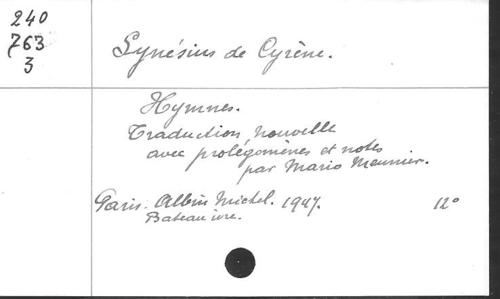 240
763
3
Synésius de Cyrène.
Hymnes.
Traduction nouvelle
avec prolégomènes et notes
par Mario Meunier.
Paris. Albin Michel. 1947. 12°
Bateau ivre.